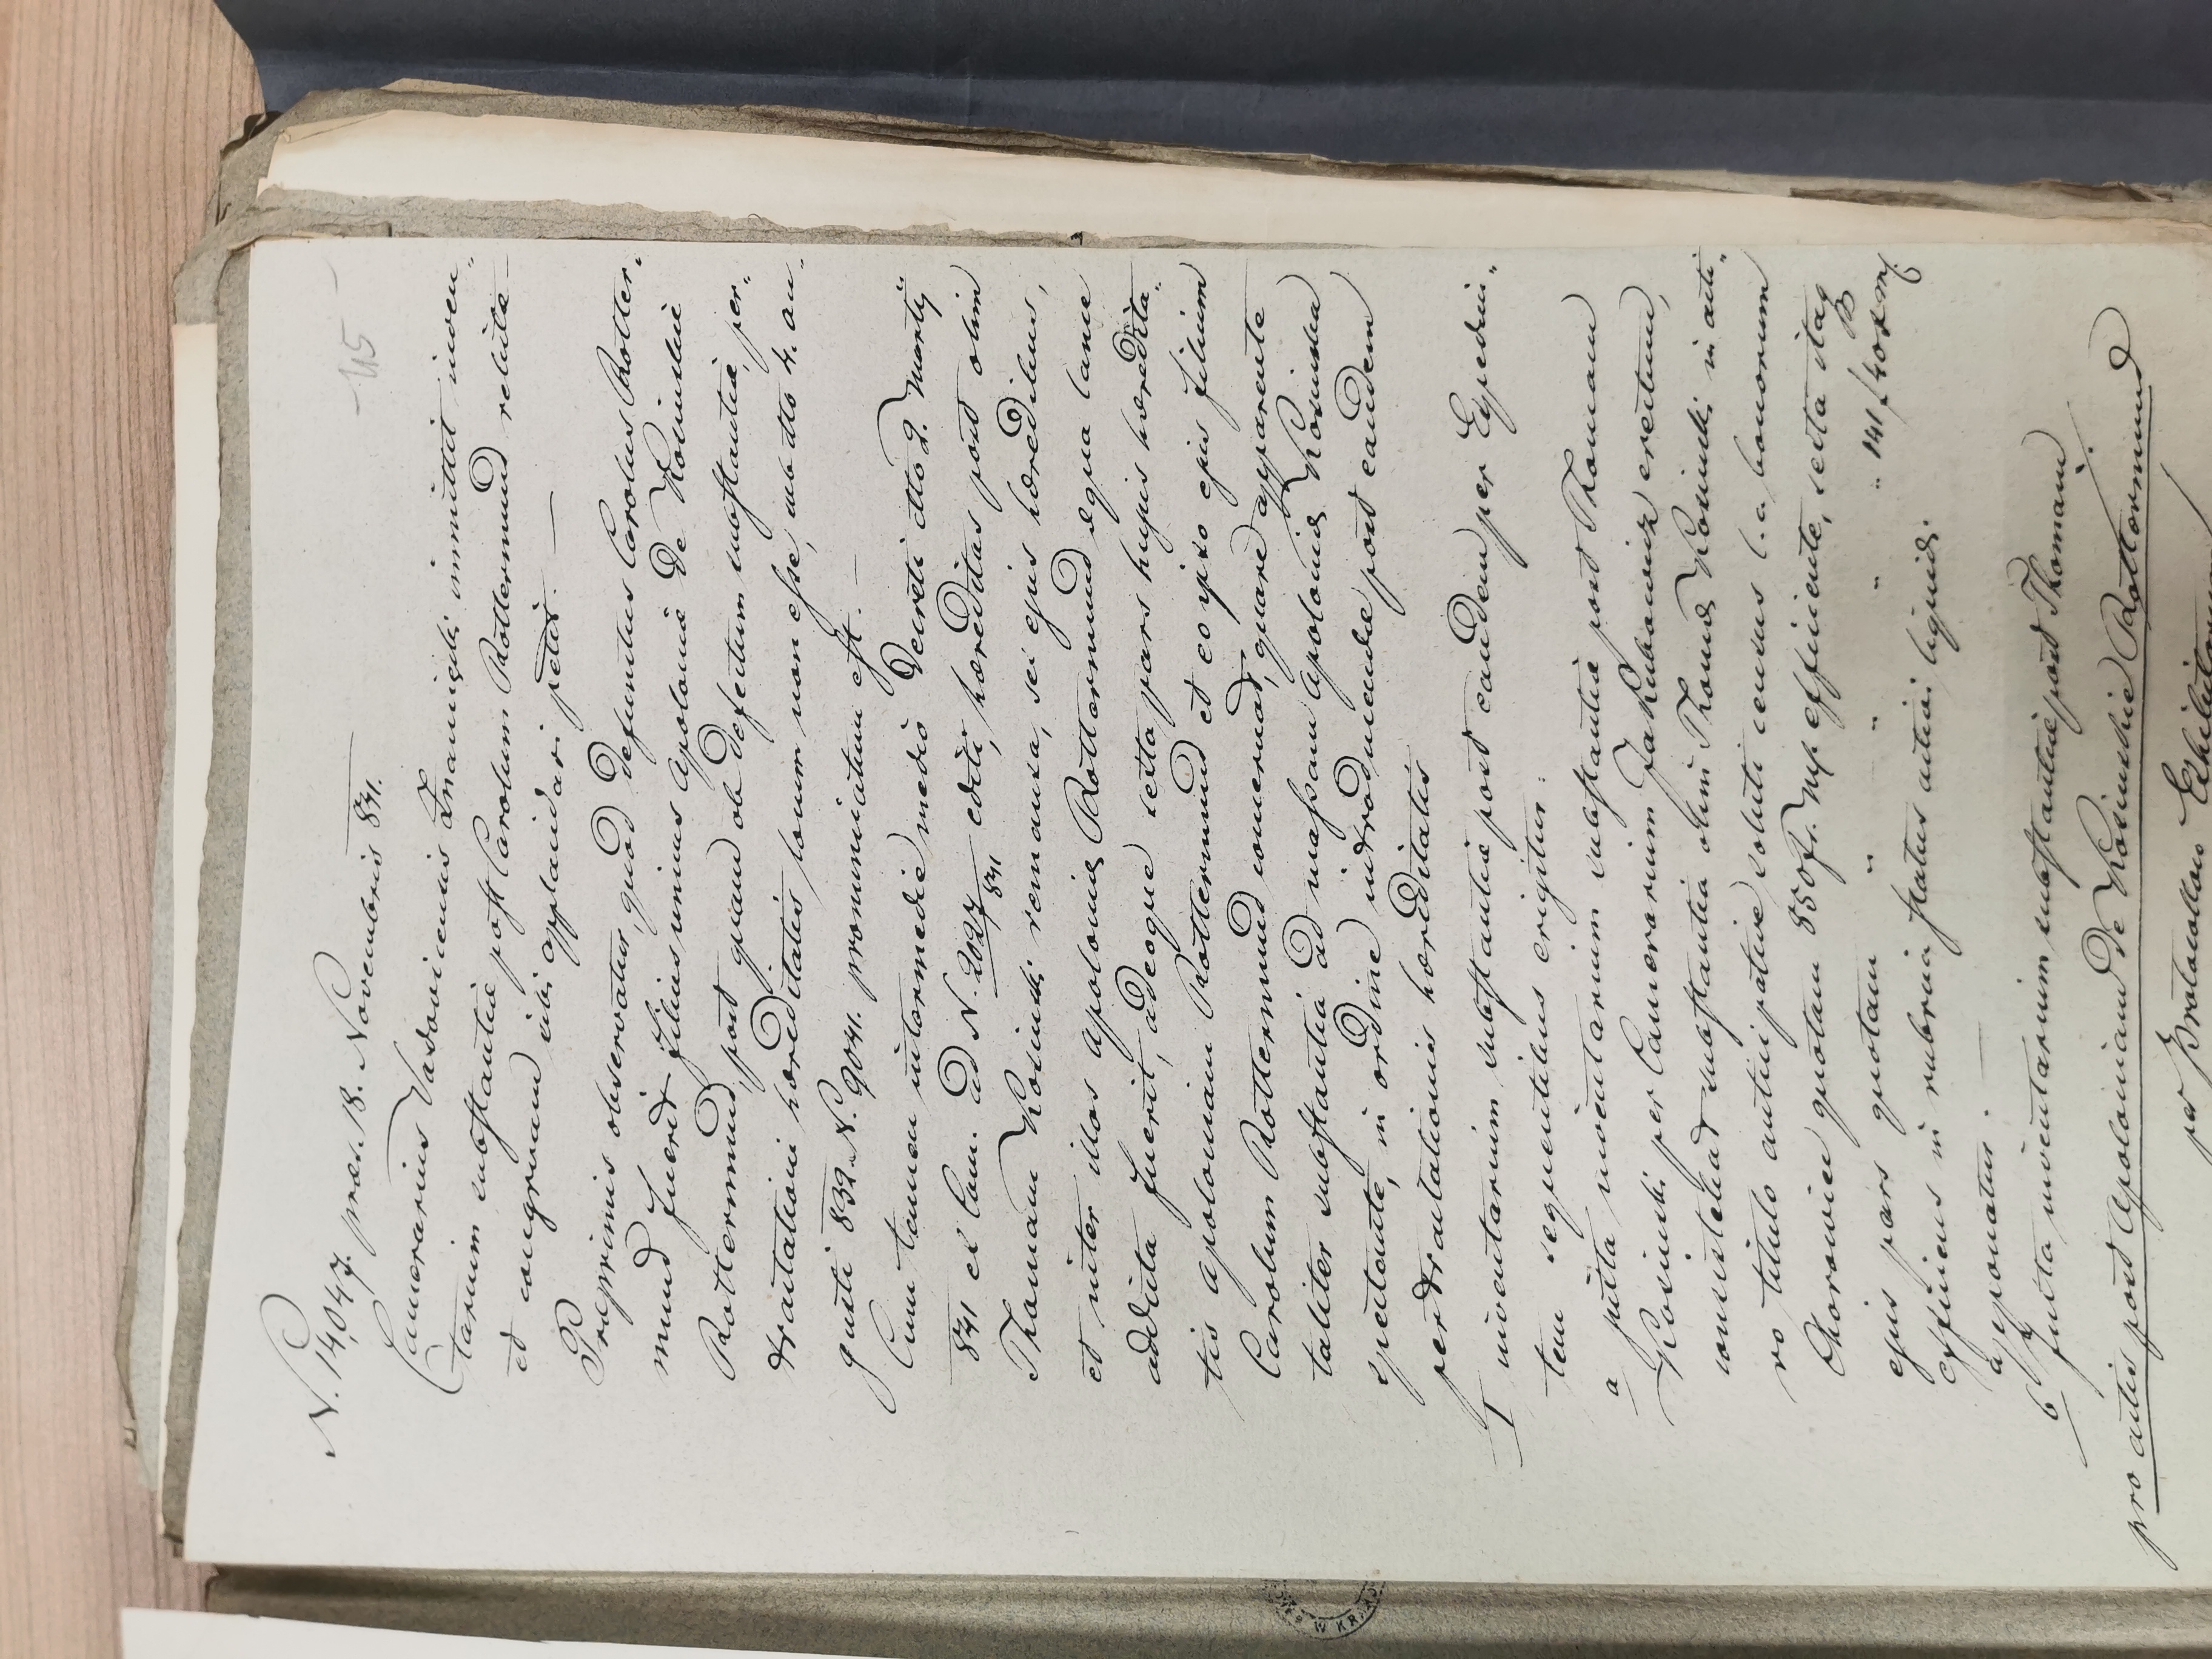 115
N. 14,047. praes. 18. Novembris 841.
Camerarius Vadovicensis Znamięcki immittit inven„
tarium substantiae post Carolum Rottermund relictae
et congruam sibi applacidari petit. —
Praeprimis observatur, quod defunctus Carolus Rotter„
mund fuerit filius unius Apoloniae de Kosinskie
Rottermund, post quam ob defectum substantiae, per„
tractationi haereditatis locum non esse, sub dtto 4. au„
gusti 832 N. 9041. pronunciatum est. —
Cum tamen intermedie medio Decreti dtto 2. Martij
841 et Com. ad N. 2027/841 editi, haereditas post olim
Thomam Kosinski remansa, sei ejus haeredibus,
et inter illos Apoloniae Rottermund aqua lance
addicta fuerit, adeoque sexta pars hujus haeredita„
tis Apoloniam Rottermund et eo ipso ejus filium
Carolum Rottermund concernat, quare apparente
taliter substantia ad massam Apoloniae Kosinska
spectante, in ordine introducendae post eandem
pertractationis haereditatis
I inventarium substantiae post eandem per Expedien„
tem sequentibus erigitur:
a juxta inventarium substantiae post Thomam
Kosinski per Camerarium Jakubowicz erectum,
consistebat substantia olim Thomae Kosinski in acti„
vo titulo anticipative soluti census c. a. bonorum
Chorowice quotam 850 fr. M/K efficiente, sexta itaq
ejus pars quotam „ „ „ „ „ 141 f 40 xr M/K
efficiens in rubrica status activi liquidi
apponatur. —
b juxta inventarium substantiae post Thomam
pro actis post Apoloniam de Kosinskie Rottermund
per Protocollon Exhibitorum